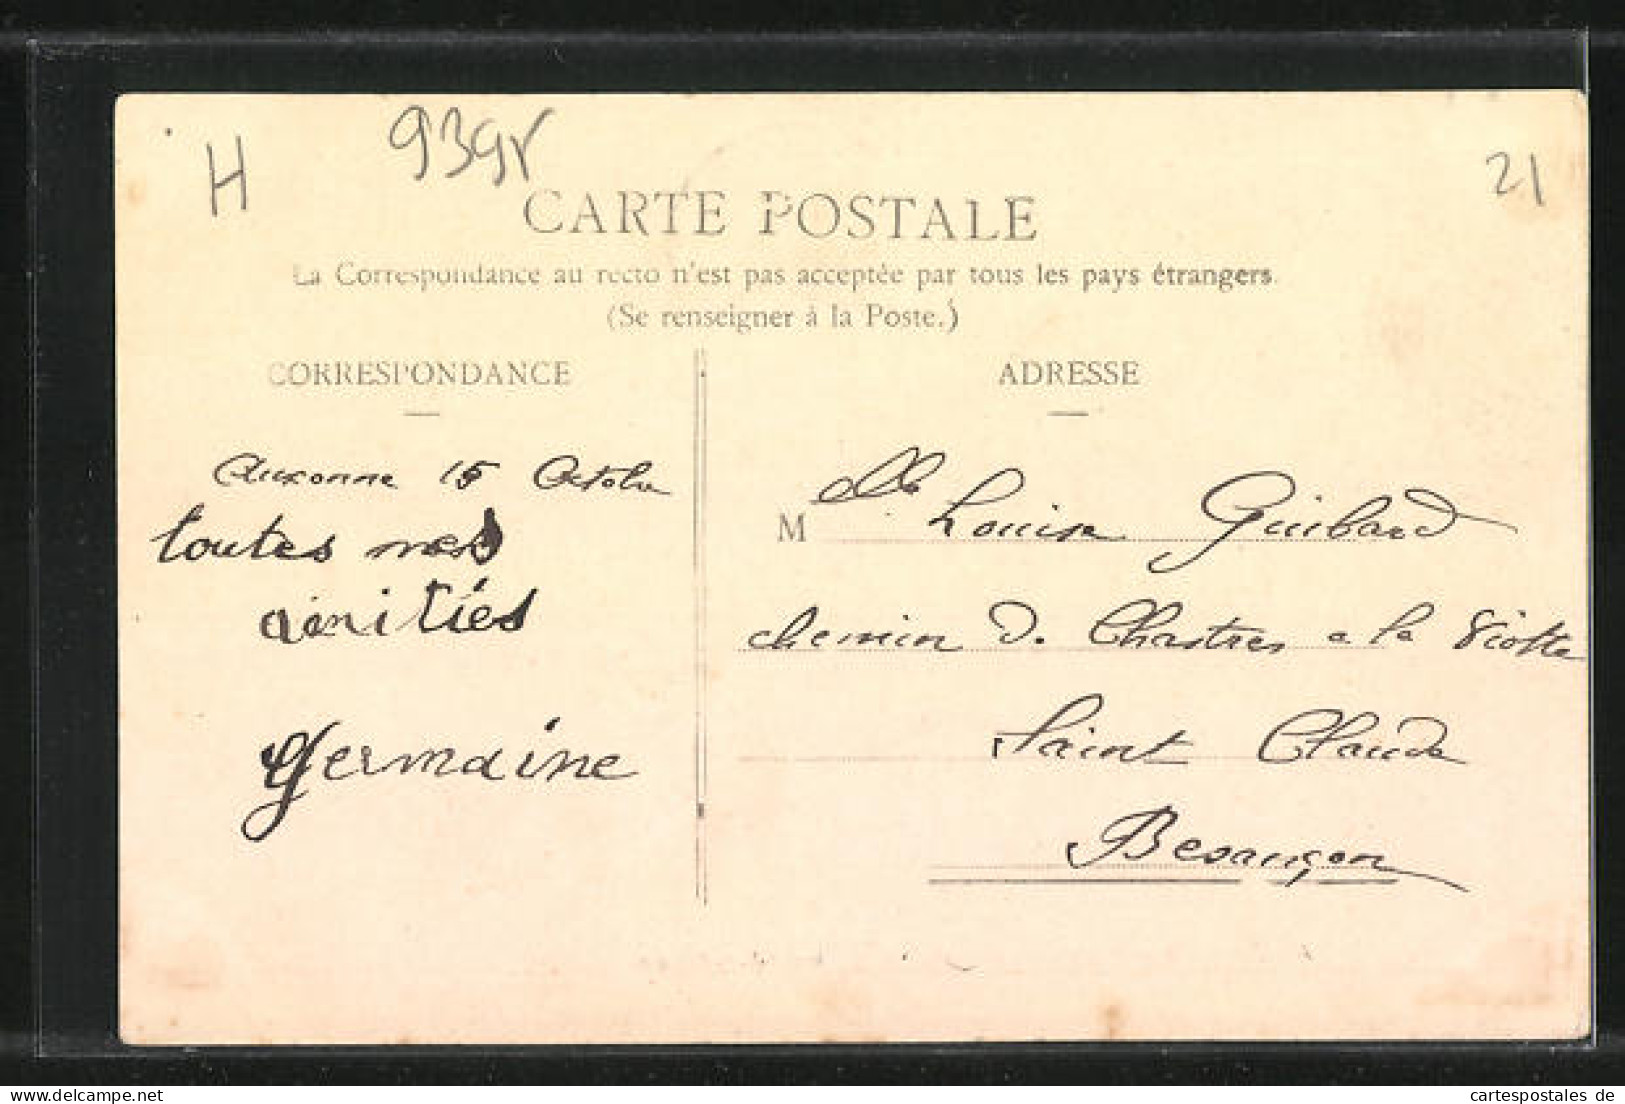 H 939r 21
CARTE POSTALE
La Correspondance au recto n'est pas acceptée par tous les pays étrangers.
(Se renseigner à la Poste.)
CORRESPONDANCE
Auxonne 15 Octobre
toutes nos
amitiés
Germaine
ADRESSE
M lle Louise Guibard
chemin de Chastres a la Viotte
Saint Claude
Besançon
cartespostales de